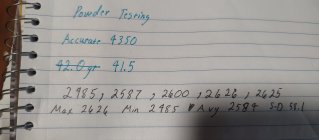 Powder Testing
Accurate 4350
42.0 gr 41.5
2485, 2587, 2600, 2626, 2625
Max 2626 Min 2485 Avg. 2584 S-D 58.1